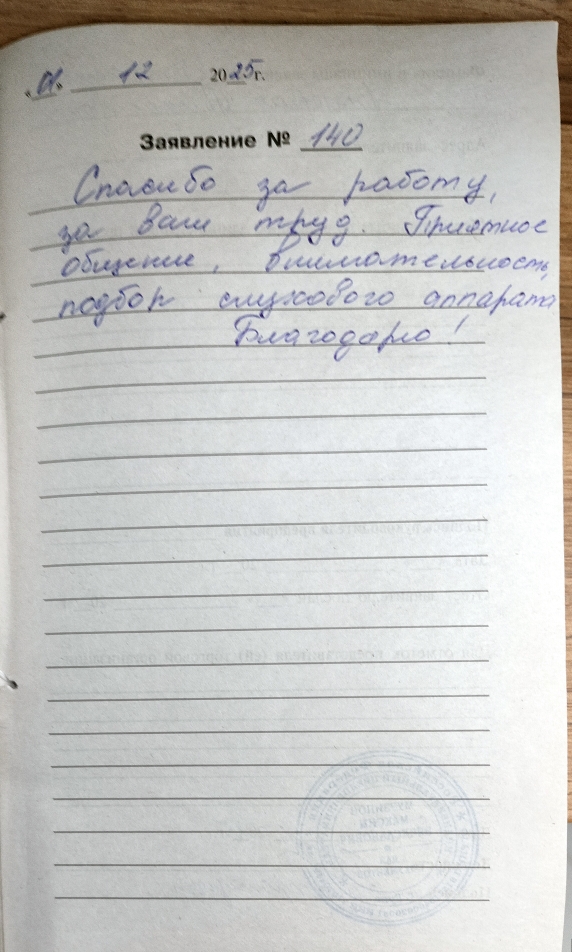 «01» 12 2025г.
Заявление № 140
Спасибо за работу,
за ваш труд. Приятное
общение, внимательность,
подбор слухового аппарата
Благодарю!